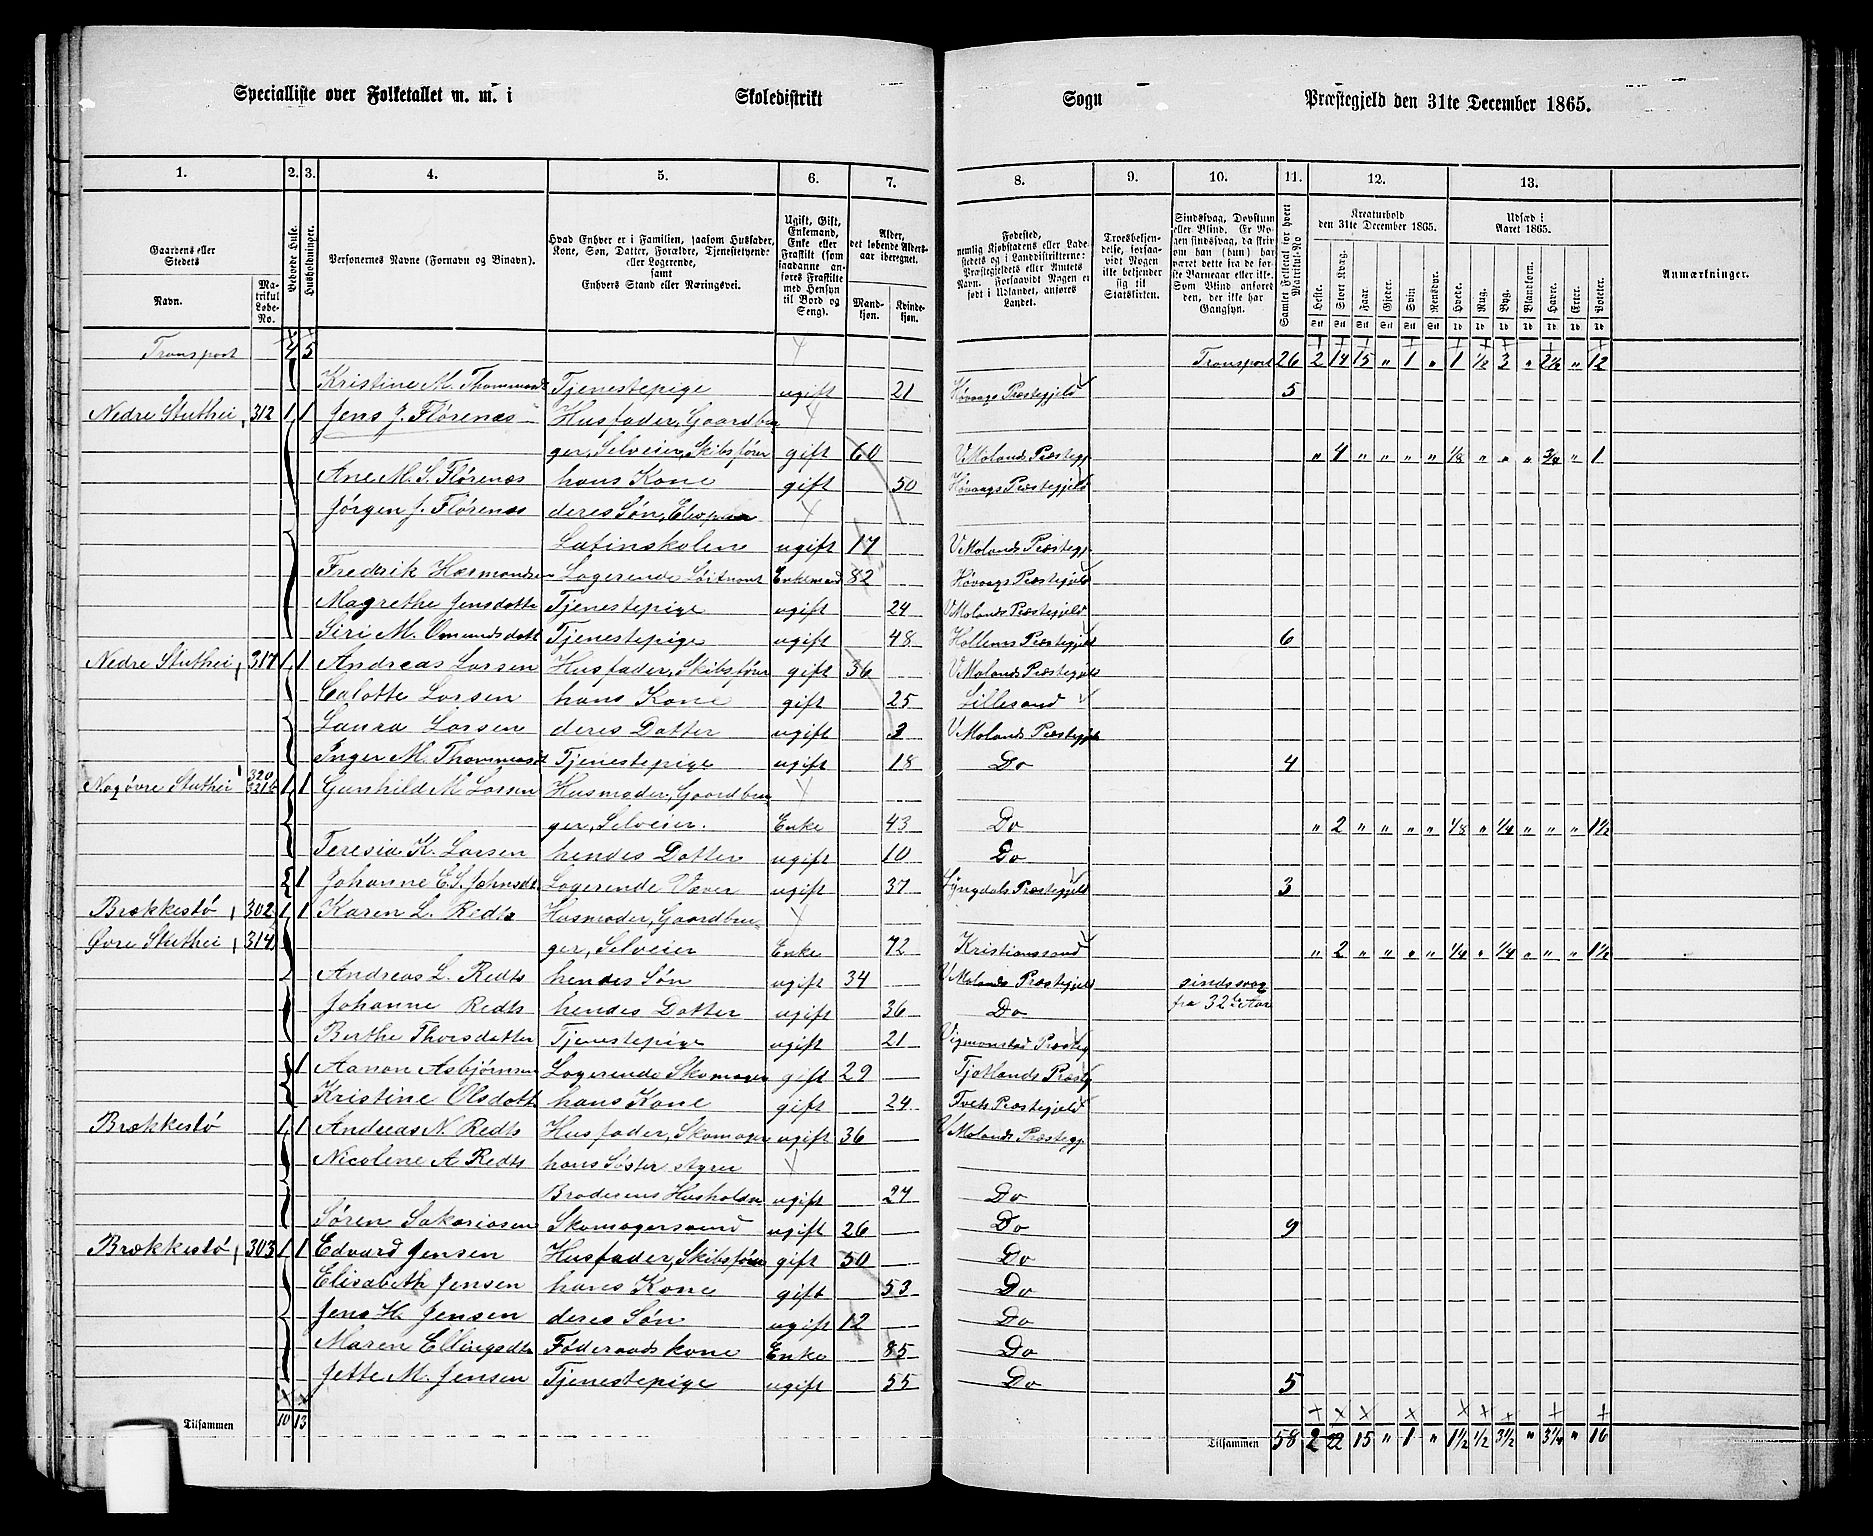 Specialliste over Folketallet m. m. i Skoledistrikt Sogn Præstegjeld den 31te December 1865.
1. 2. 3. 4. 5. 6. 7. 8. 9. 10. 11. 12. 13.
Gaardens eller Stedets Navn. Matrikul Løbe-No. Beboede Huse. Husholdninger. Personernes Navne (Fornavn og Binavn). Hvad Enhver er i Familien, saasom Husfader, Kone, Søn, Datter, Forældre, Tjenestetyende eller Logerende, samt Enhvers Stand eller Næringsvei. Ugift, Gift, Enkemand, Enke eller Fraskilt (som saadanne anføres Fraskilte med Hensyn til Bord og Seng). Alder, det løbende Alders-aar iberegnet. Mand-kjøn. Kvinde-kjøn.
Fødested, nemlig Kjøbstadens eller Ladestedets og i Landdistrikterne: Præstegjeldets eller Amtets Navn. Forsaavidt Nogen er født i Udlandet, anføres Landet. Troesbekjendelse, forsaavidt Nogen ikke bekjender sig til Statskirken. Sindssvag, Døvstum eller Blind. Er Nogen sindssvag, da skrives om han (hun) har været dette fra de første Barneaar eller ikke. Som Blind anføres den, der ikke har Gangsyn. Samlet Folketal for hvert Matrikul-No Kreaturhold den 31te December 1865. Udsæd i Aaret 1865. Anmærkninger.
Heste. Stort Kvæg. Faar. Gjeder. Svin. Rensdyr. Hvede. Rug. Byg. Blandkorn. Havre. Erter. Poteter.
Transport 4 5 Transport 26 2 14 15 " 1 " 1 1/2 3 " 2 1/2 " 12
Kristine M. Thommasd Tjenestepige ugift 21 Høvaags Præstegjeld 5
Nedre Stuthei, 312 1 1 Jens J. Flørenæs Husfader, Gaardbru
ger, Selveier, Skibsfører gift 60 V Molands Præstegj " 4 " " " " 1/8 " " " 3/4 " 1
Ane M. S. Flørenæs hans Kone gift 50 Høvaags Præstegjeld
Jørgen J. Flørenæs deres Søn, Elev paa
Latinskolen ugift 17 V Molands Præstegj
Fredrik Hermandsen Logerende Enkemand 82 Høvaags Præstegjeld
Magrethe Jensdatte Tjenestepige ugift 24 V Molands Præstegjeld
Siri M. Omundsdatt Tjenestepige ugift 48 Hollens Præstegjeld 6
Nedre Stuthei, 317 1 1 Andreas Larsen Husfader, Skibsfører gift 36 V Molands Præstegjeld
Calotte Larsen hans Kone gift 25 Lillesand
Laura Larsen deres Datter ugift 3 V Molands Præstegje
Inger M. Thommasdt Tjenestepige ugift 18 Do 4
Nagøvre Stuthei 320 321b 1 1 Gunhild M Larsen Husmoder, Gaardbru
ger, Selveier. Enke 43 Do " 2 " " " " 1/8 " 1/4 " " " 1 1/2
Teresia K. Larsen hendes Datter ugift 10 Do
1 Johanne E S. Jahnsdt Logerende Væver ugift 37 Lyngdals Præstegjeld 3
Brækkestø, 302 1 1 Karen L. Redts Husmoder, Gaardbru
Øvre Stuthei, 314 ger, Selveier Enke 72 Kristianssand " 2 " " " " 1/4 " 1/4 " " " 1 1/2
Andreas L. Redts hendes Søn ugift 34 V Molands Præstegjeld sindssvag
Johanne Redts hendes Datter ugift 36 Do fra 32te Aar
Berthe Thorsdatter Tjenestepige ugift 21 Vigmonstad Præsteg
1 Aanon Asbjørnsen Logerende Skomager gift 29 Tjotlands Præstg
Kristine Olsdatt hans Kone gift 24 Tvets Præstegjeld
Brækkestø 1 1 Andreas N. Redts Husfader, Skomager ugift 36 V Molands Præstegj.
Nicolene A Redts hans Søster styrer
Broderens Husholdn ugift 24 Do
Søren Sakariasen Skomagersvend ugift 26 Do 9
Brækkestø, 303 1 1 Edvard Jensen Husfader, Skibsfører gift 50 Do
Elisabeth Jensen hans Kone gift 53 Do
Jens H. Jensen deres Søn ugift 12 Do
Maren Ellingsdtr Føderaadskone Enke 85 Do
Jette M. Jensen Tjenestepige ugift 55 Do 5
Tilsammen 10 13 Tilsammen 58 2 22 15 " 1 " 1 1/2 1/2 3 1/2 " 3 1/4 " 16